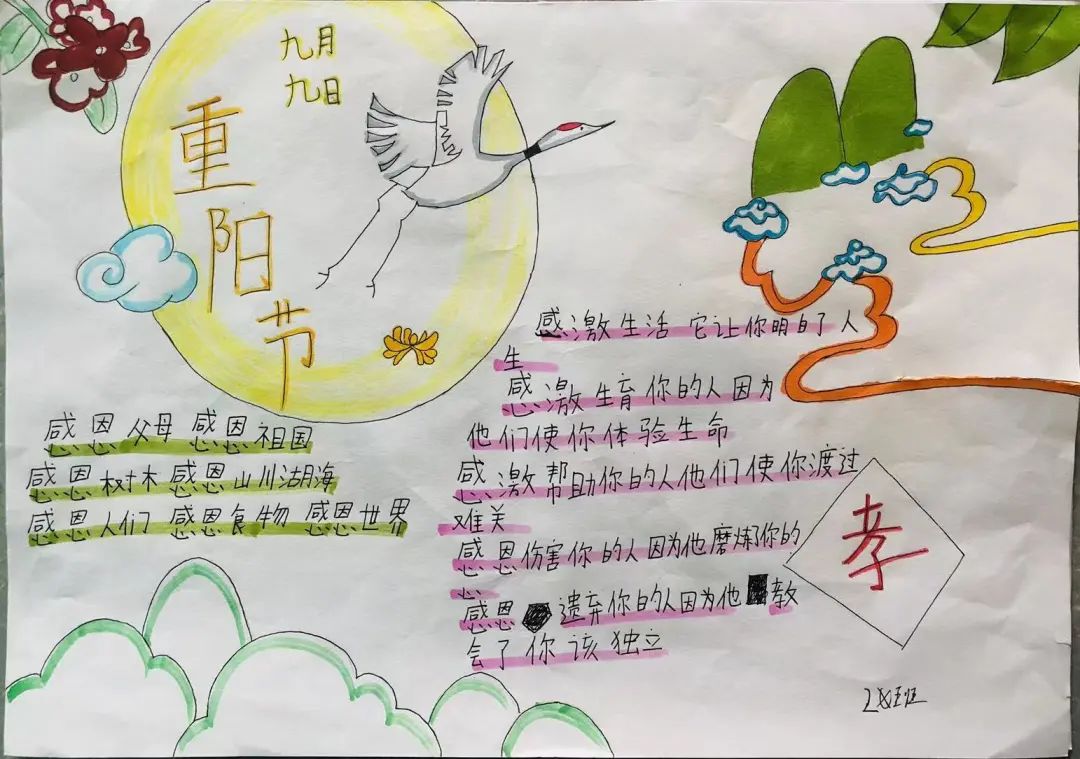 九月
九日
重阳节
感激生活 它让你明白了人
生
感激生育你的人因为
他们使你体验生命
感激帮助你的人他们使你渡过
难关
感恩伤害你的人因为他磨炼你的
心
感恩遗弃你的人因为他教
会了你该独立
感恩父母 感恩祖国
感恩树木 感恩山川湖海
感恩人们 感恩食物 感恩世界
孝